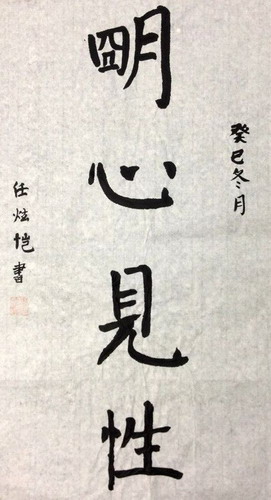 癸巳冬月
明心見性
任炫恺書